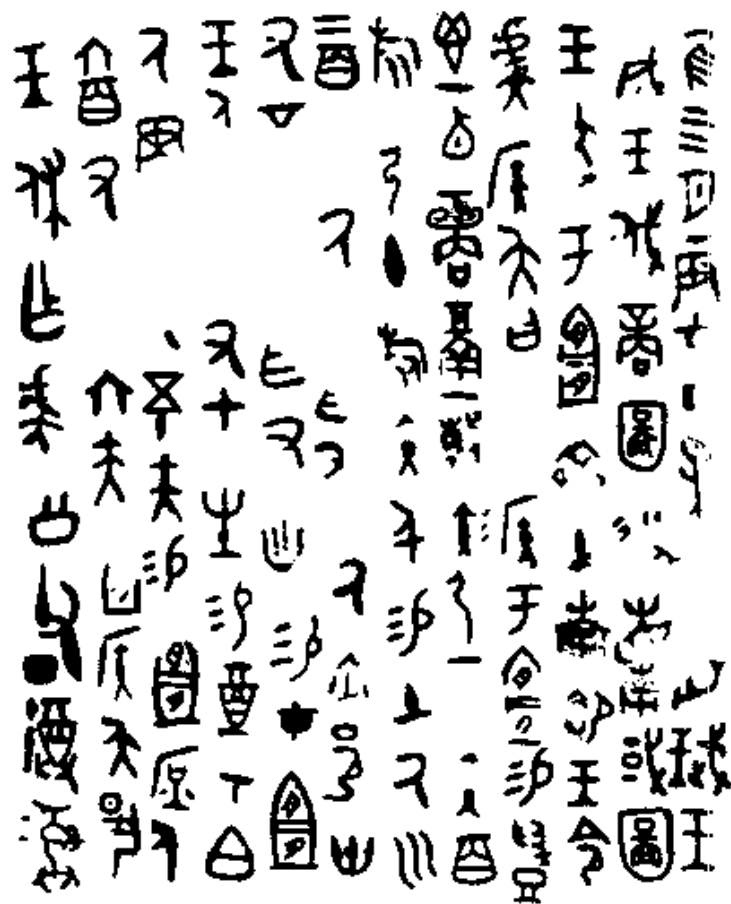 隹四月辰才丁未王省珷王
成王伐商圖省東或圖
王于宜入土南鄉王令
虞侯夨曰侯于宜易
鬯一卣商瓚一彤弓一彤矢百
旅弓十旅矢千易土厥川三
百厥百又廿厥宅邑卅
又五厥百又卌易才宜
王人又七生易奠七白
厥又五十夫易宜庶人
六百又六夫宜侯夨揚
王休乍虞公父丁尊彝